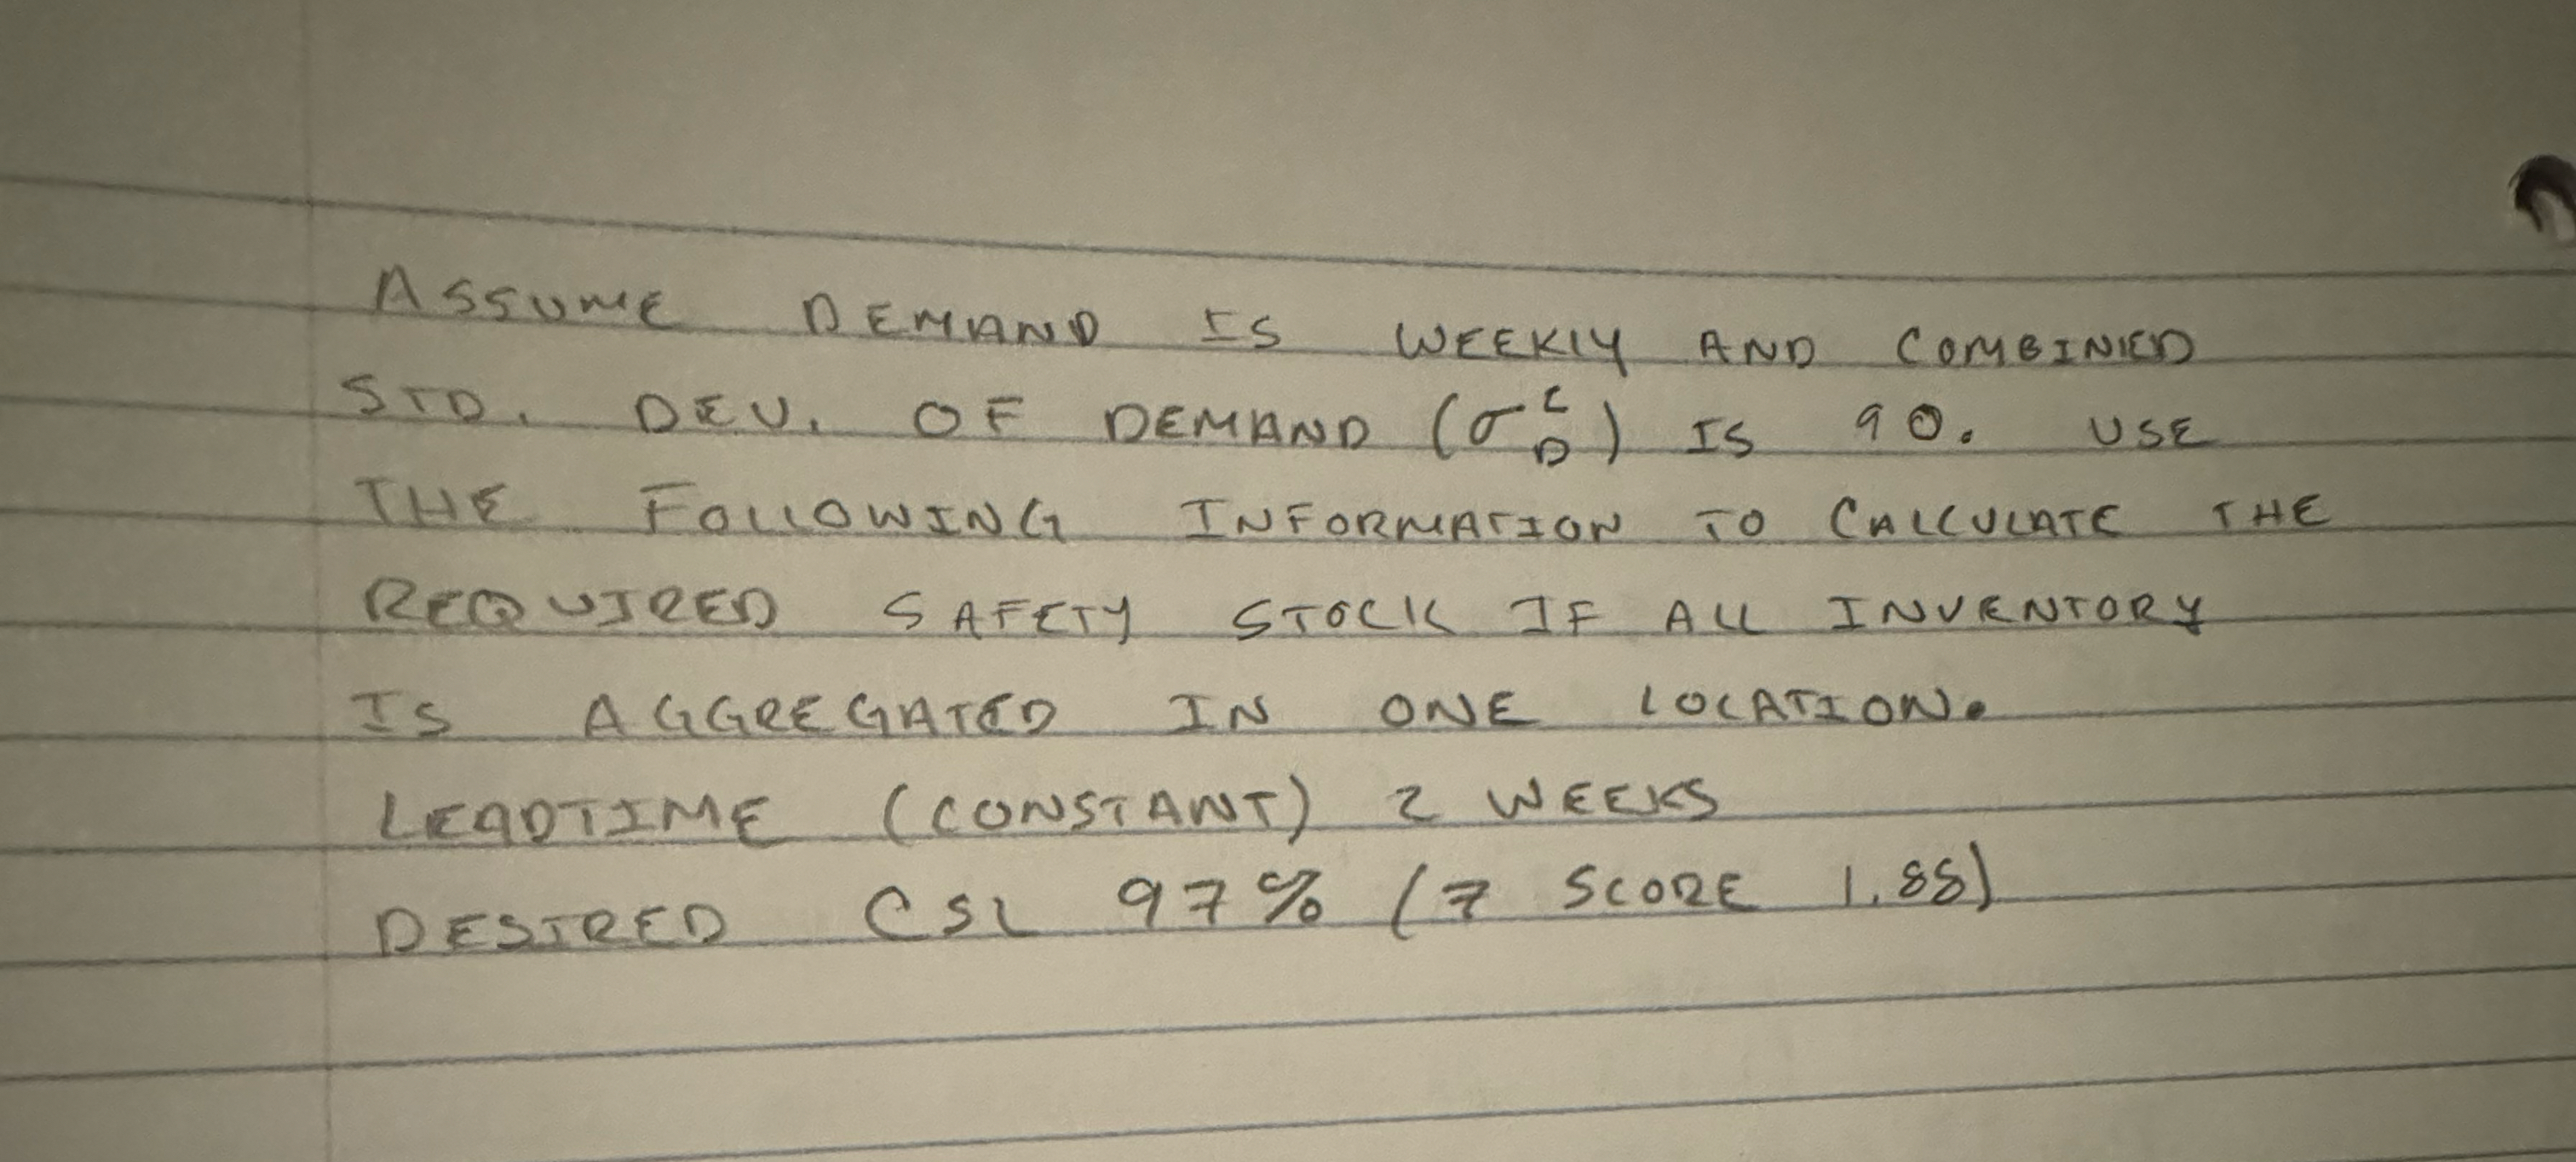 ASSUME DEMAND IS WEEKLY AND COMBINED
STD. DEV. OF DEMAND (σ^C_D) IS 90. USE
THE FOLLOWING INFORMATION TO CALCULATE THE
REQUIRED SAFETY STOCK IF ALL INVENTORY
IS AGGREGATED IN ONE LOCATION.
LEADTIME (CONSTANT) 2 WEEKS
DESIRED CSL 97% (Z SCORE 1.88)